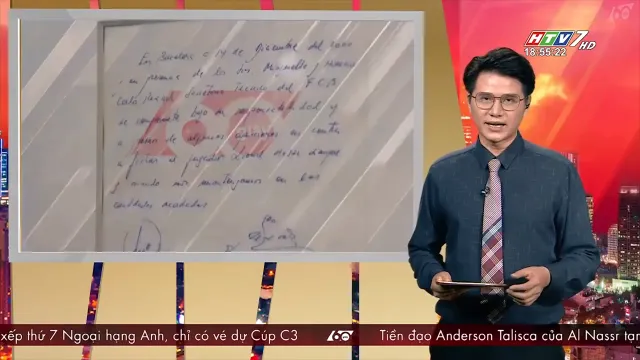 HTV7 HD
18:55:22
En Barcelona a 14 de diciembre del 2000
en presencia de los Srs Minguella y Horacio
Carles Rexach Director Técnico del F.C.B
se compromete bajo su responsabilidad y
a pesar de algunas opiniones en contra
a fichar al jugador Lionel Messi siempre
y cuando nos mantengamos en las
cantidades acordadas
60
xếp thứ 7 Ngoại hạng Anh, chỉ có vé dự Cúp C3 60 Tiền đạo Anderson Talisca của Al Nassr tạ